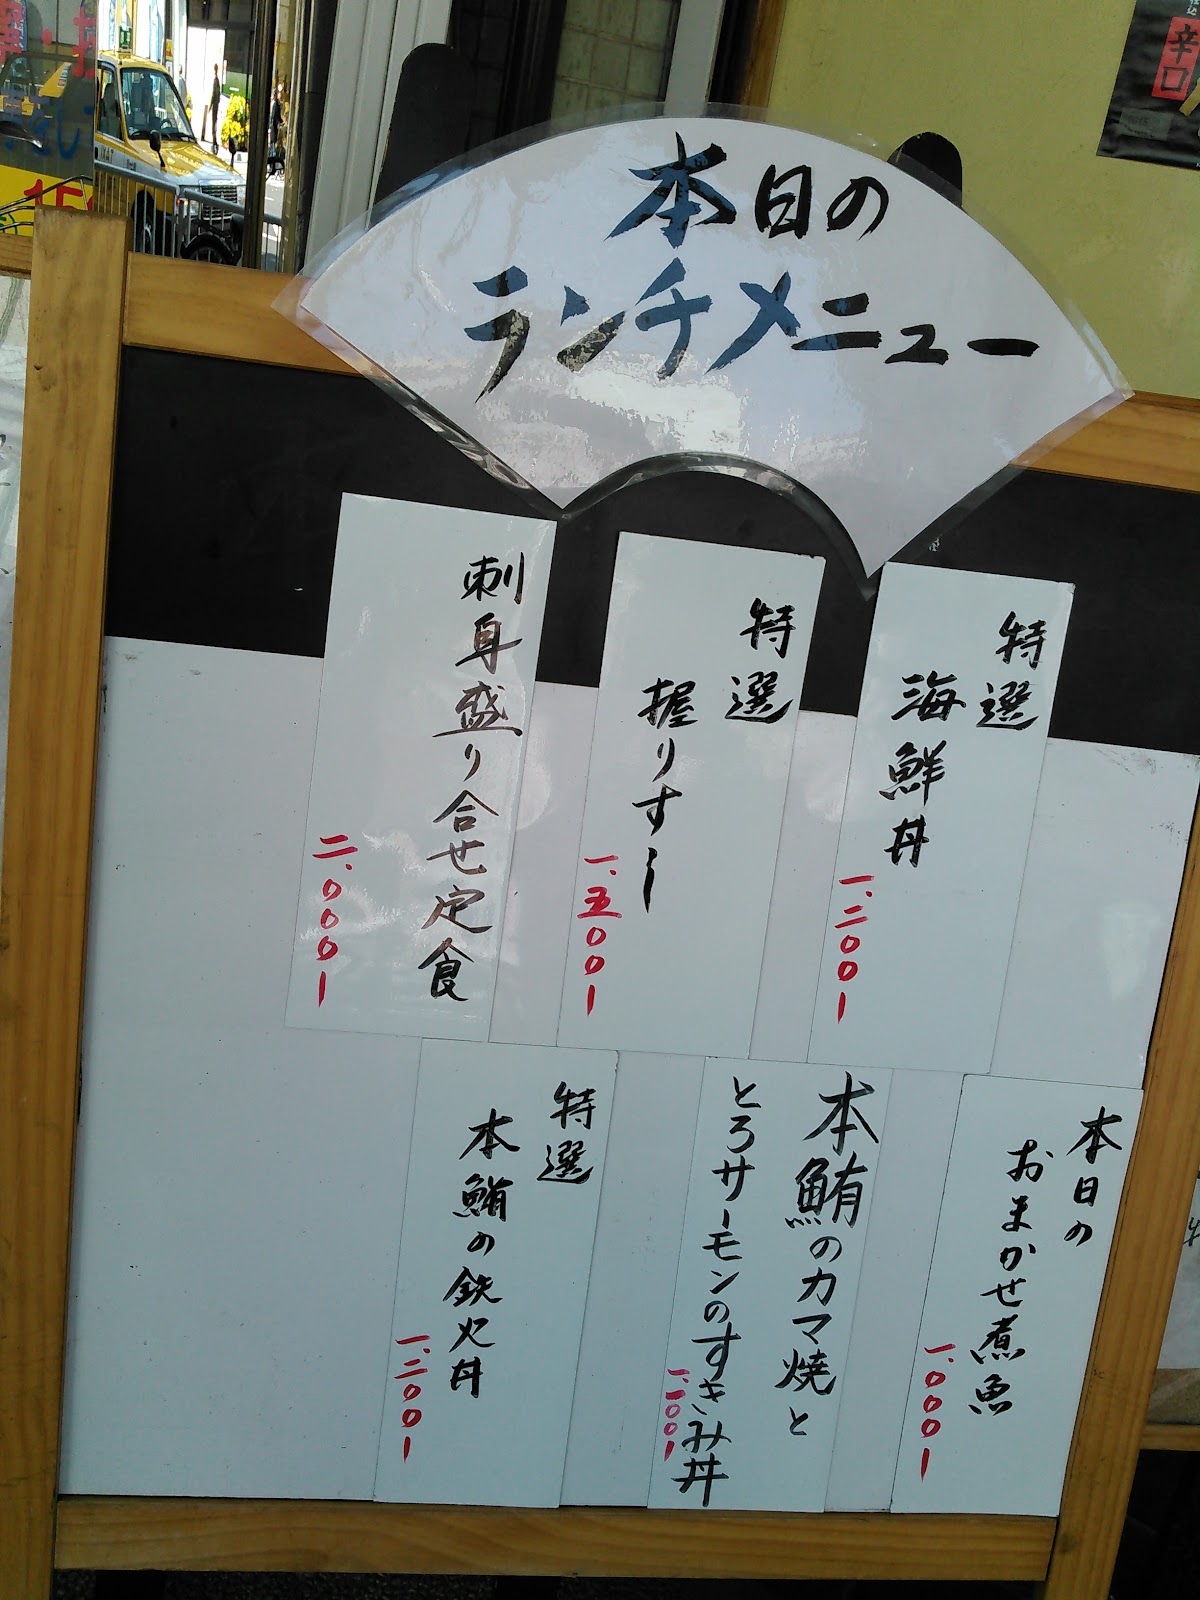 本日の
ランチメニュー
特選
海鮮丼
一、二〇〇ー
特選
握りすし
一、五〇〇ー
刺身盛り合せ定食
二、〇〇〇ー
本日の
おまかせ煮魚
一、〇〇〇ー
本鮪のカマ焼と
とろサーモンのすきみ丼
特選
本鮪の鉄火丼
一、二〇〇ー
辛口